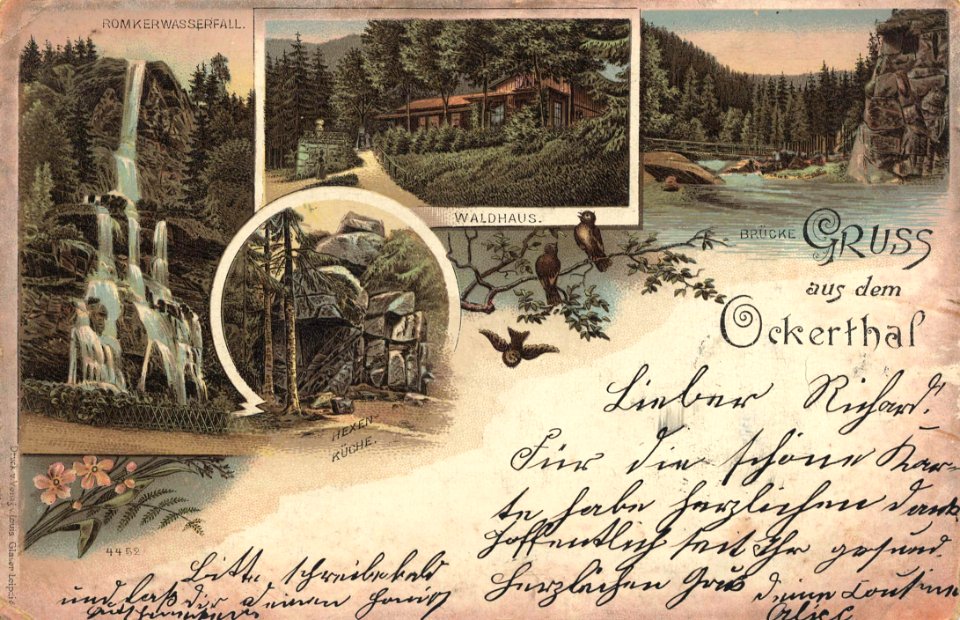 ROMKERWASSERFALL.
WALDHAUS.
BRÜCKE
GRUSS
aus dem
Ockerthal
HEXEN-
KÜCHE.
Lieber Richard!
Für die schöne Kar-
te habe herzlichen dank
hoffentlich seit Ihr gesund.
Herzlichen Gruß deine Cousine
Bitte schreibe bald
und laß dir deinen Honig
4452
Louis Glaser Leipzig